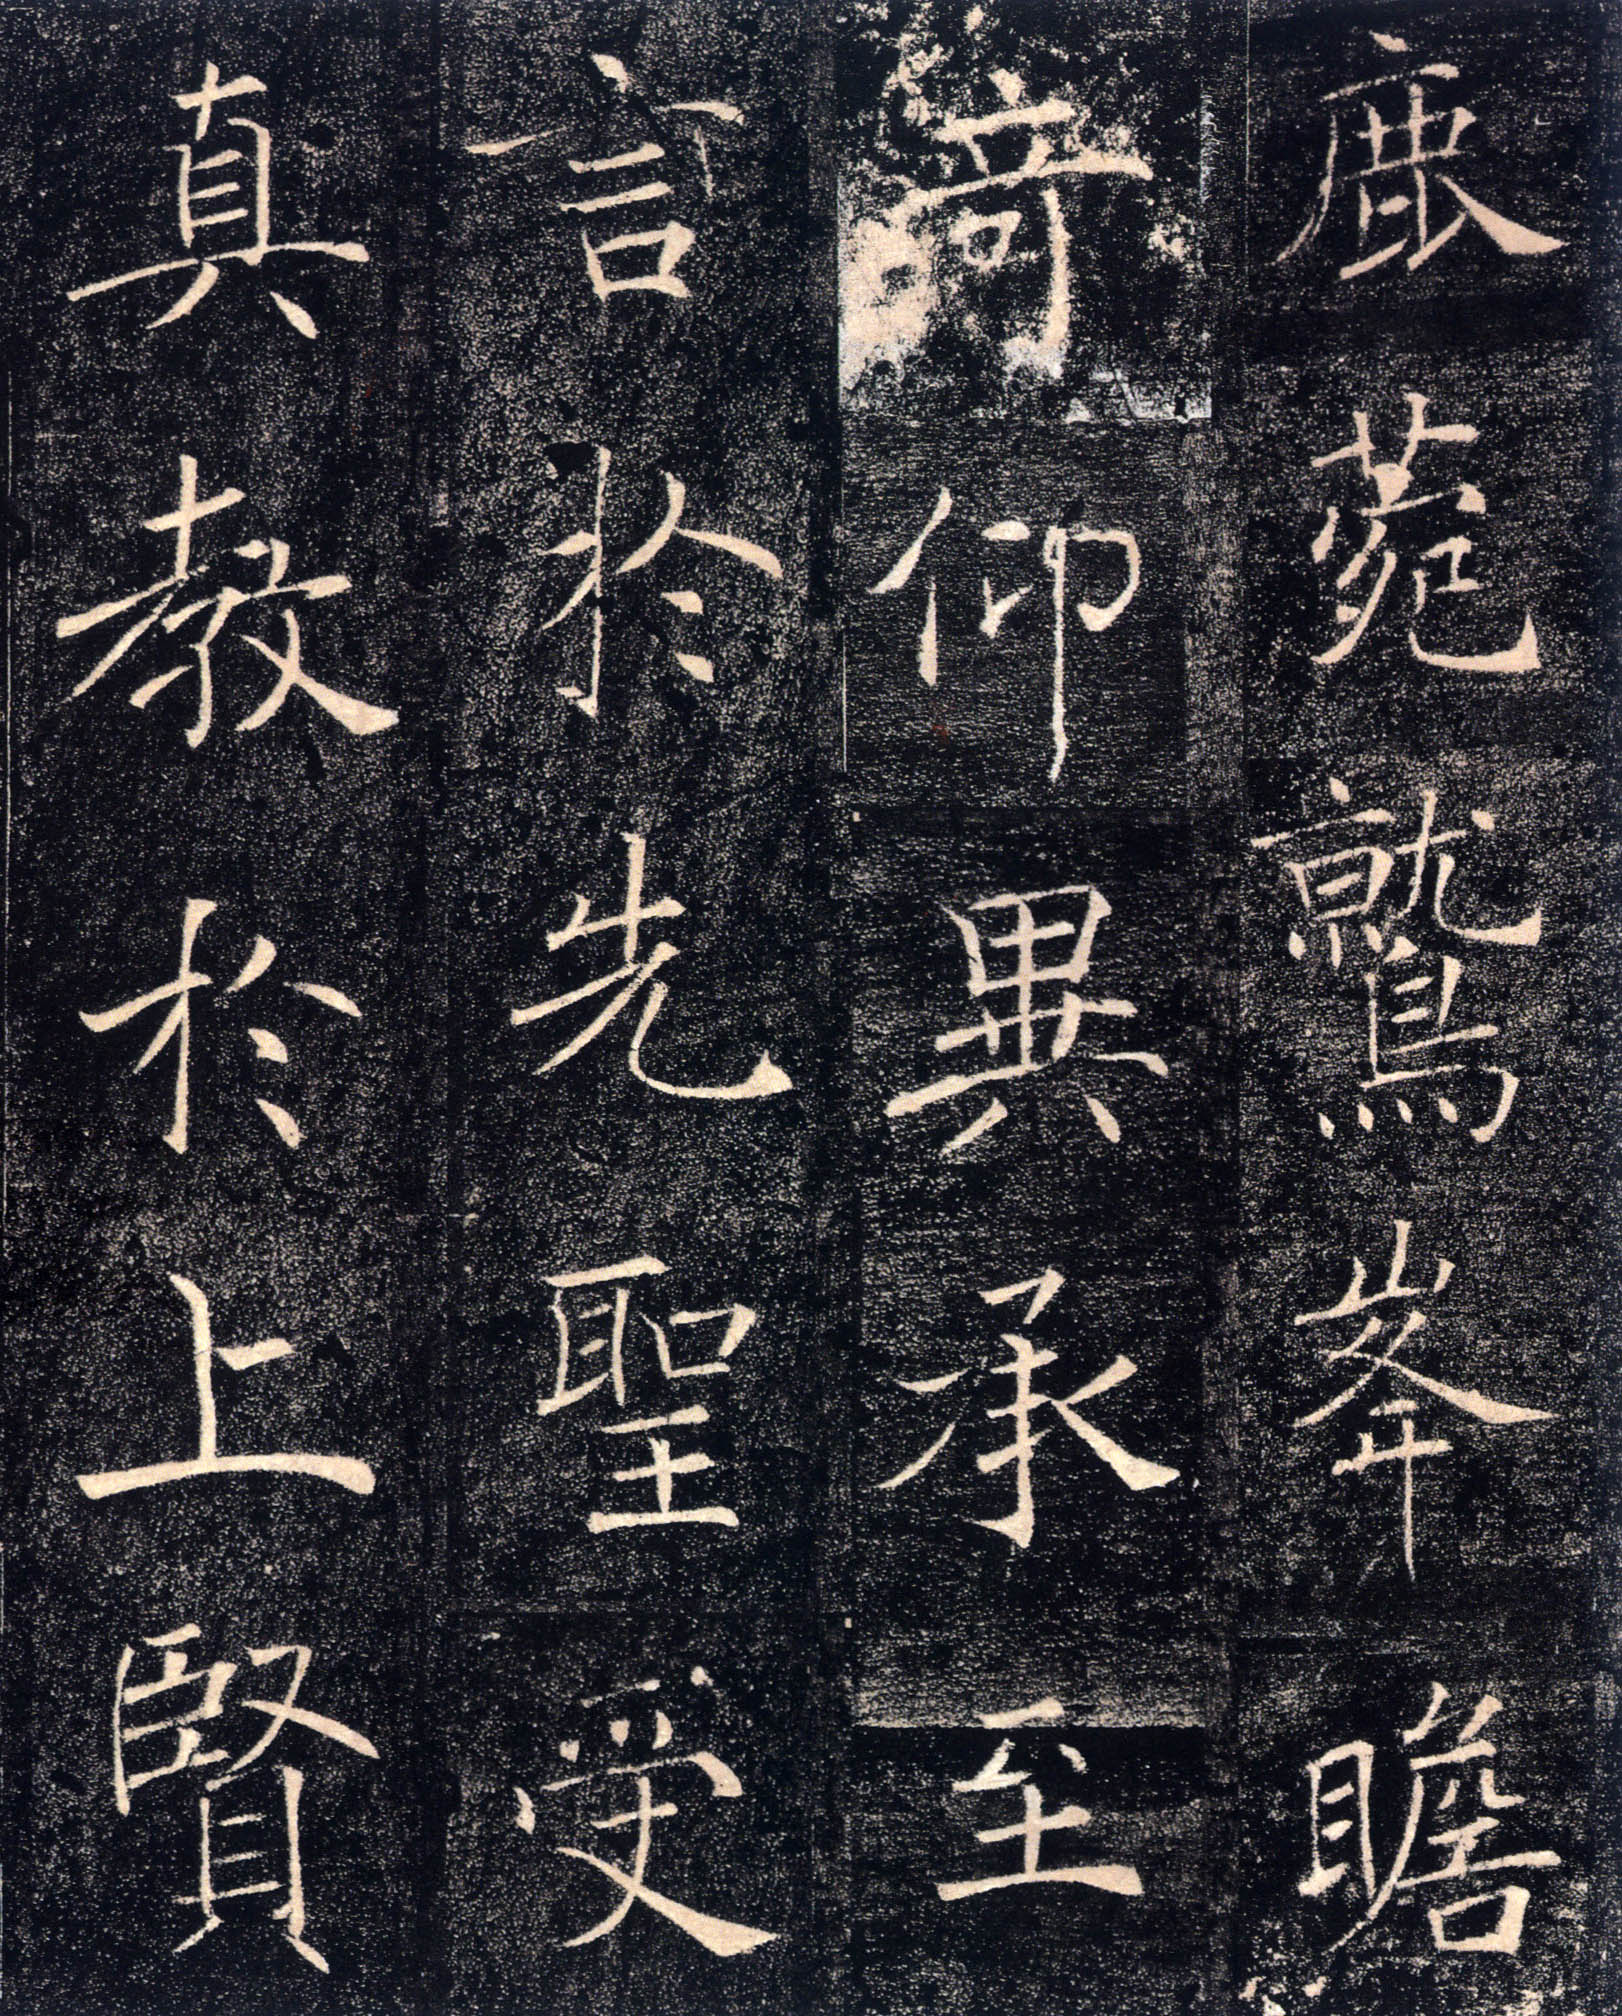 鹿菀鷲峯瞻
竒仰異承至
言於先聖受
真教於上賢